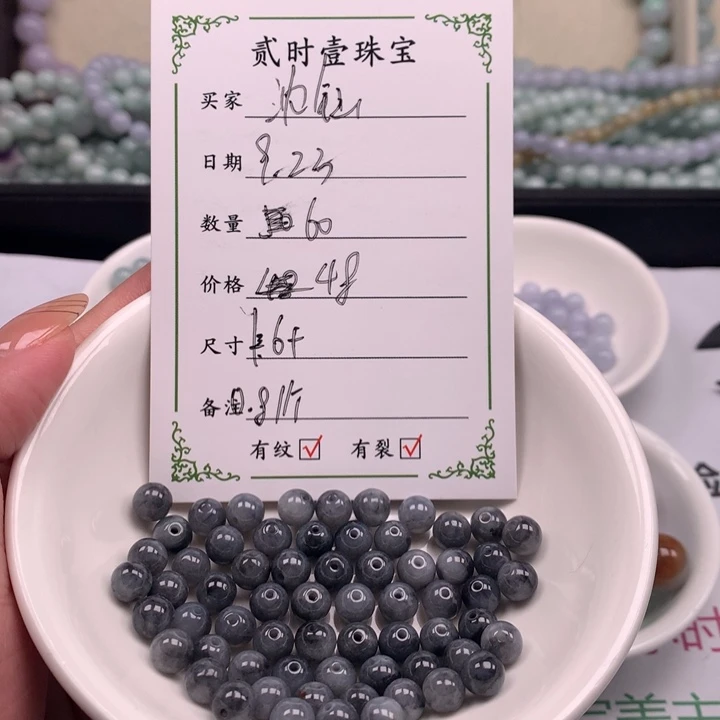 贰时壹珠宝
买家
日期 8.22
数量 60
价格 48
尺寸 6+
备注 0.8/个
有纹☑ 有裂☑
时